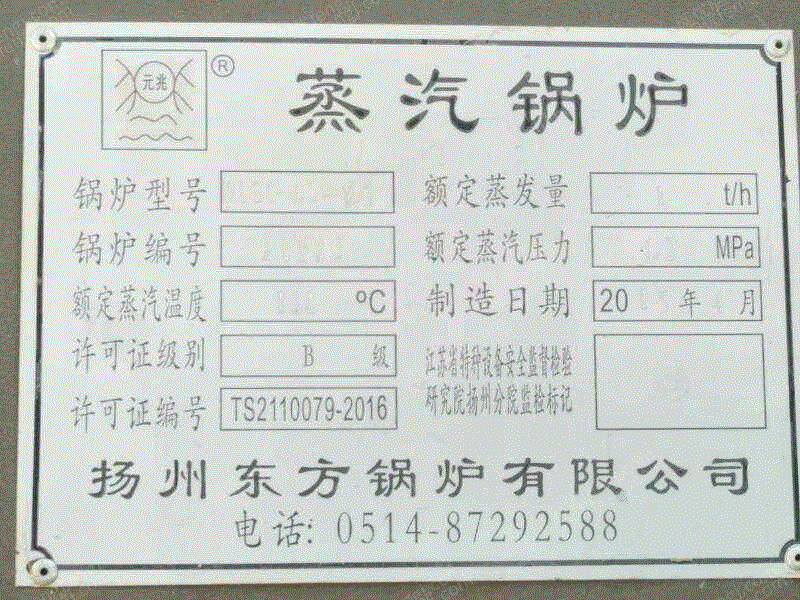 元兆 ® 蒸汽锅炉
锅炉型号 额定蒸发量 t/h
锅炉编号 额定蒸汽压力 MPa
额定蒸汽温度 ℃ 制造日期 20 年 月
许可证级别 B 级 江苏省特种设备安全监督检验
许可证编号 TS2110079-2016 研究院扬州分院监检标记
扬州东方锅炉有限公司
电话: 0514-87292588